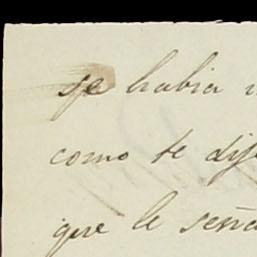 se habia
como te dije
que le seña